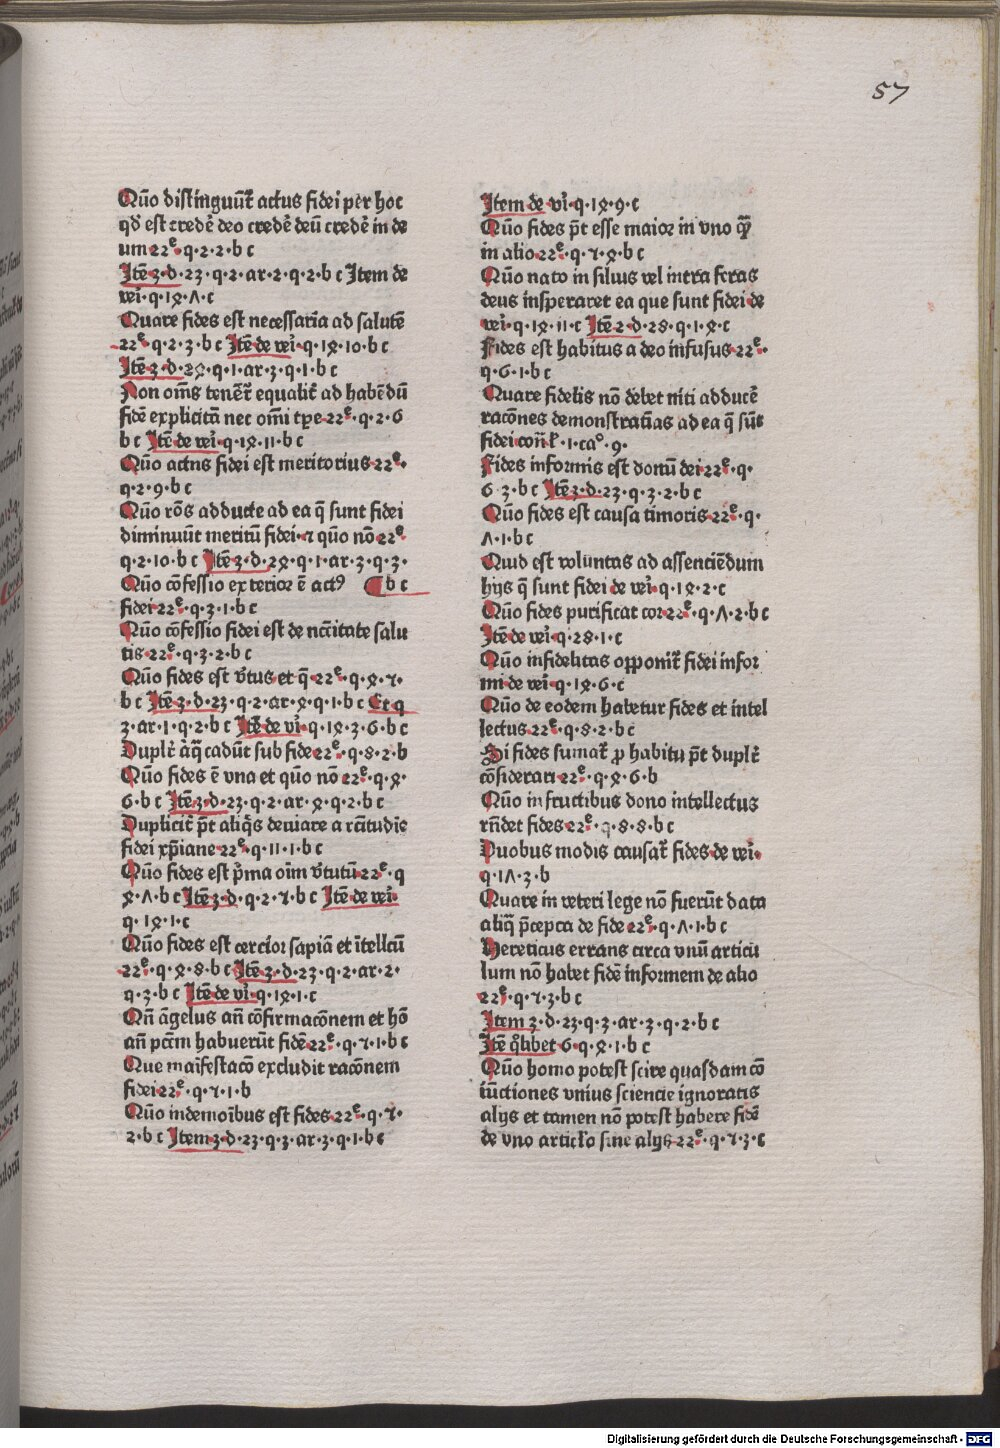 57
Quō distinguūt᷑ actus fidei per hoc
qd̄ est credē deo credē deū credē in de
um 22ͤ·q·2·2·b c
Itē 3·d·23·q·2·ar·2·q·2·b c Item de
vei᷑·q·18·ʌ·c
Quare fides est necessaria ad salutē
22ͤ·q·2·3·b c Itē de vei᷑·q·18·10·b c
Itē 3·d·28·q·1·ar·3·q·1·b c
Non oms̄ tenēt᷑ equalit᷑ ad habēdū
fidē explicitā nec om̄i tp̄e 22ͤ·q·2·6
b c Itē de vei᷑·q·18·11·b c
Quō actus fidei est meritorius 22ͤ·
q·2·9·b c
Quō rōs adducte ad ea q̄ sunt fidei
diminuūt meritū fidei·⁊ quō nō 22ͤ
q·2·10·b c Itē 3·d·28·q·1·ar·3·q·3·
Quō cōfessio exterior ē actꝰ ¶ b c
fidei 22ͤ·q·3·1·b c
Quō cōfessio fidei est de nc̄itate salu
tis 22ͤ·q·3·2·b c
Quō fides est v̄tus et q̄ 22ͤ·q·8·7·
b c Itē 3·d·23·q·2·ar·8·q·1·b c Et q
3·ar·1·q·2·b c Itē de vi᷑·q·18·3·6·b c
Duplr᷑ aq̄ cadūt sub fide 22ͤ·q·8·2·b
Quō fides ē vna et quō nō 22ͤ·q·8·
6·b c Itē 3·d·23·q·2·ar·8·q·2·b c
Duplicit᷑ pt̄ aliq̄s deuiare a rc̄itudīe
fidei xp̄iane 22ͤ·q·11·1·b c
Quō fides est p̄ma oīm v̄tutū 22ͤ·q
8·ʌ·b c Itē 3·d·q·2·7·b c Itē de vei᷑·
q·18·1·c
Quō fides est cercior sapiā et ītellcū
22ͤ·q·8·8·b c Itē 3·d·23·q·2·ar·2·
q·3·b c Itē de vi᷑·q·18·1·c
Qn̄ āgelus an̄ cōfirmacōnem et hō
an̄ pctm̄ habuerūt fidē 22ͤ·q·7·1·b c
Que maīfestacō excludit racōnem
fidei 22ͤ·q·7·1·b
Quō indemoībus est fides 22ͤ·q·7·
2·b c Item 3·d·23·q·3·ar·3·q·1·b c
Item de vi᷑·q·18·9·c
Quō fides pt̄ esse maior in vno q̄ꝫ
in alio 22ͤ·q·7·8·b c
Quō nato in siluis vel intra feras
deus insperaret ea que sunt fidei de
vei᷑·q·18·11·c Itē 2·d·28·q·1·8·c
Fides est habitus a deo infusus 22ͤ·
q·6·1·b c
Quare fidelis nō debet niti adducē
racōnes demonstratīas ad ea q̄ sūt
fidei con̄·1·caᵒ·9·
Fides informis est donū dei 22ͤ·q·
6 3·b c Itē 3·d·23·q·3·2·b c
Quō fides est causa timoris 22ͤ·q·
ʌ·1·b c
Quid est voluntas ad assenciēdum
hijs q̄ sunt fidei de vei᷑·q·18·2·c
Quō fides purificat cor 22ͤ·q·ʌ·2·b c
Itē de vei᷑·q·28·1·c
Quō infidelitas opponit᷑ fidei infor
mi de vei᷑·q·18·6·c
Quō de eodem habetur fides et intel
lectus 22ͤ·q·8·2·b c
Si fides sumat᷑ ꝓ habitu pt̄ duplr᷑
cōsiderari 22ͤ·q·8·6·b
Quō in fructibus dono intellectus
rn̄det fides 22ͤ·q·8·8·b c
Duobus modis causat᷑ fides de vei᷑·
q·1ʌ·3·b
Quare in veteri lege nō fuerūt data
aliq̄ p̄cepta de fide 22ͤ·q·ʌ·1·b c
Hereticus errans circa vnū articu
lum nō habet fidē informem de alio
22ͤ·q·7·3·b c
Item 3·d·23·q·3·ar·3·q·2·b c
Itē qͦlibet 6·q·8·1·b c
Quō homo potest scire quasdam cō
iūctiones vnius sciencie ignoratis
alijs et tamen nō potest habere fidē
de vno articl̓o sine alijs 22ͤ·q·7·3·c
Digitalisierung gefördert durch die Deutsche Forschungsgemeinschaft - DFG